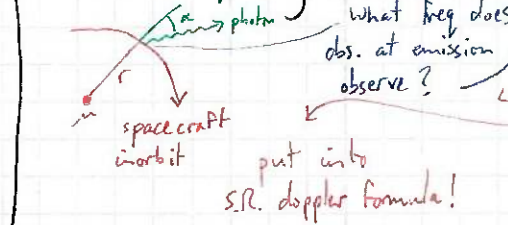 α
photon
what freq does
obs. at emission
observe?
r
μ
spacecraft
in orbit
put into
S.R. doppler formula!